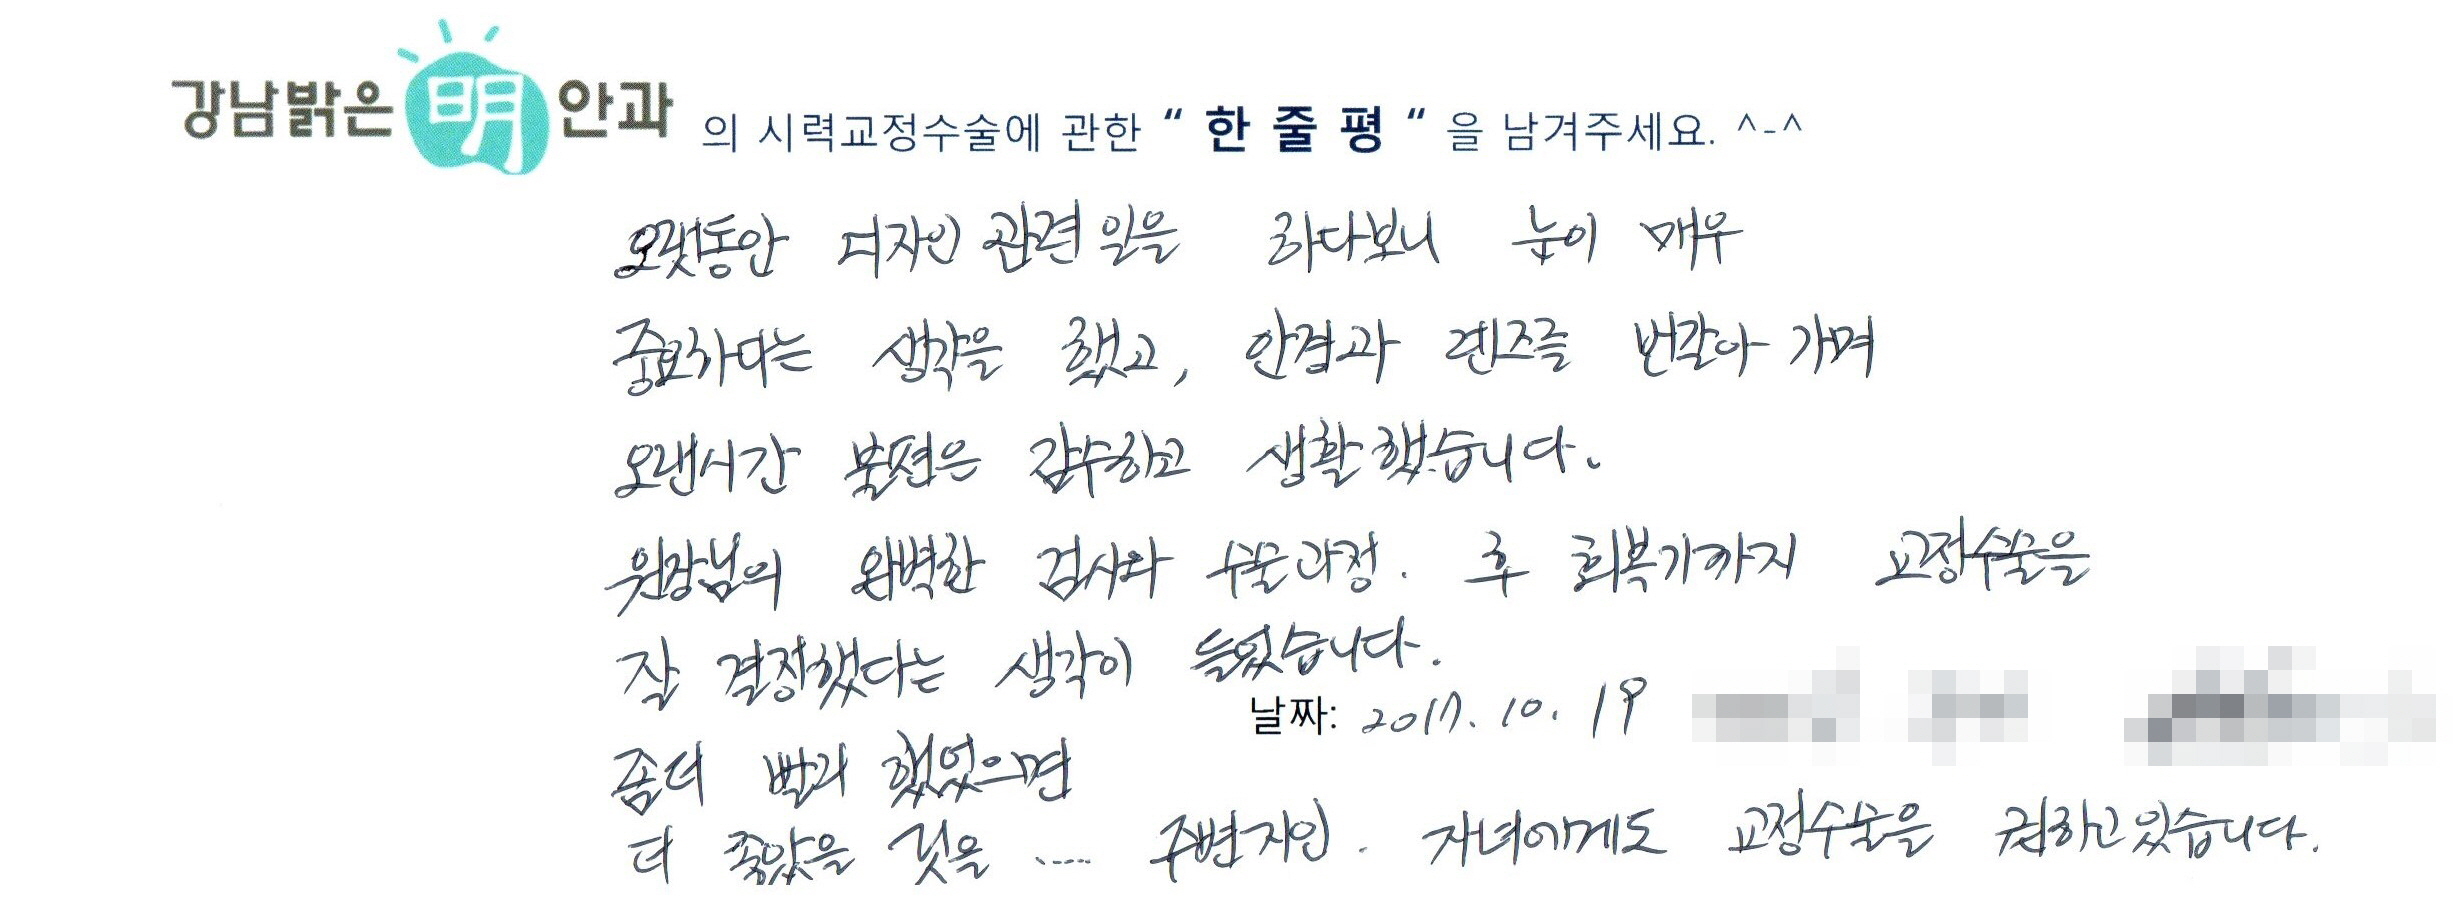 강남밝은 明 안과 의 시력교정수술에 관한 “ 한 줄 평 “ 을 남겨주세요. ^-^
오랫동안 디자인 관련 일을 하다보니 눈이 매우
중요하다는 생각을 했고, 안경과 렌즈를 번갈아 가며
오랜시간 불편은 감수하고 생활했습니다.
원장님의 완벽한 검사와 수술과정. 후 회복기까지 교정수술을
잘 결정했다는 생각이 들었습니다.
날짜: 2017. 10. 19
좀더 빨리 했었으면
더 좋았을 것을 ..... 주변지인. 자녀에게도 교정수술을 권하고있습니다.